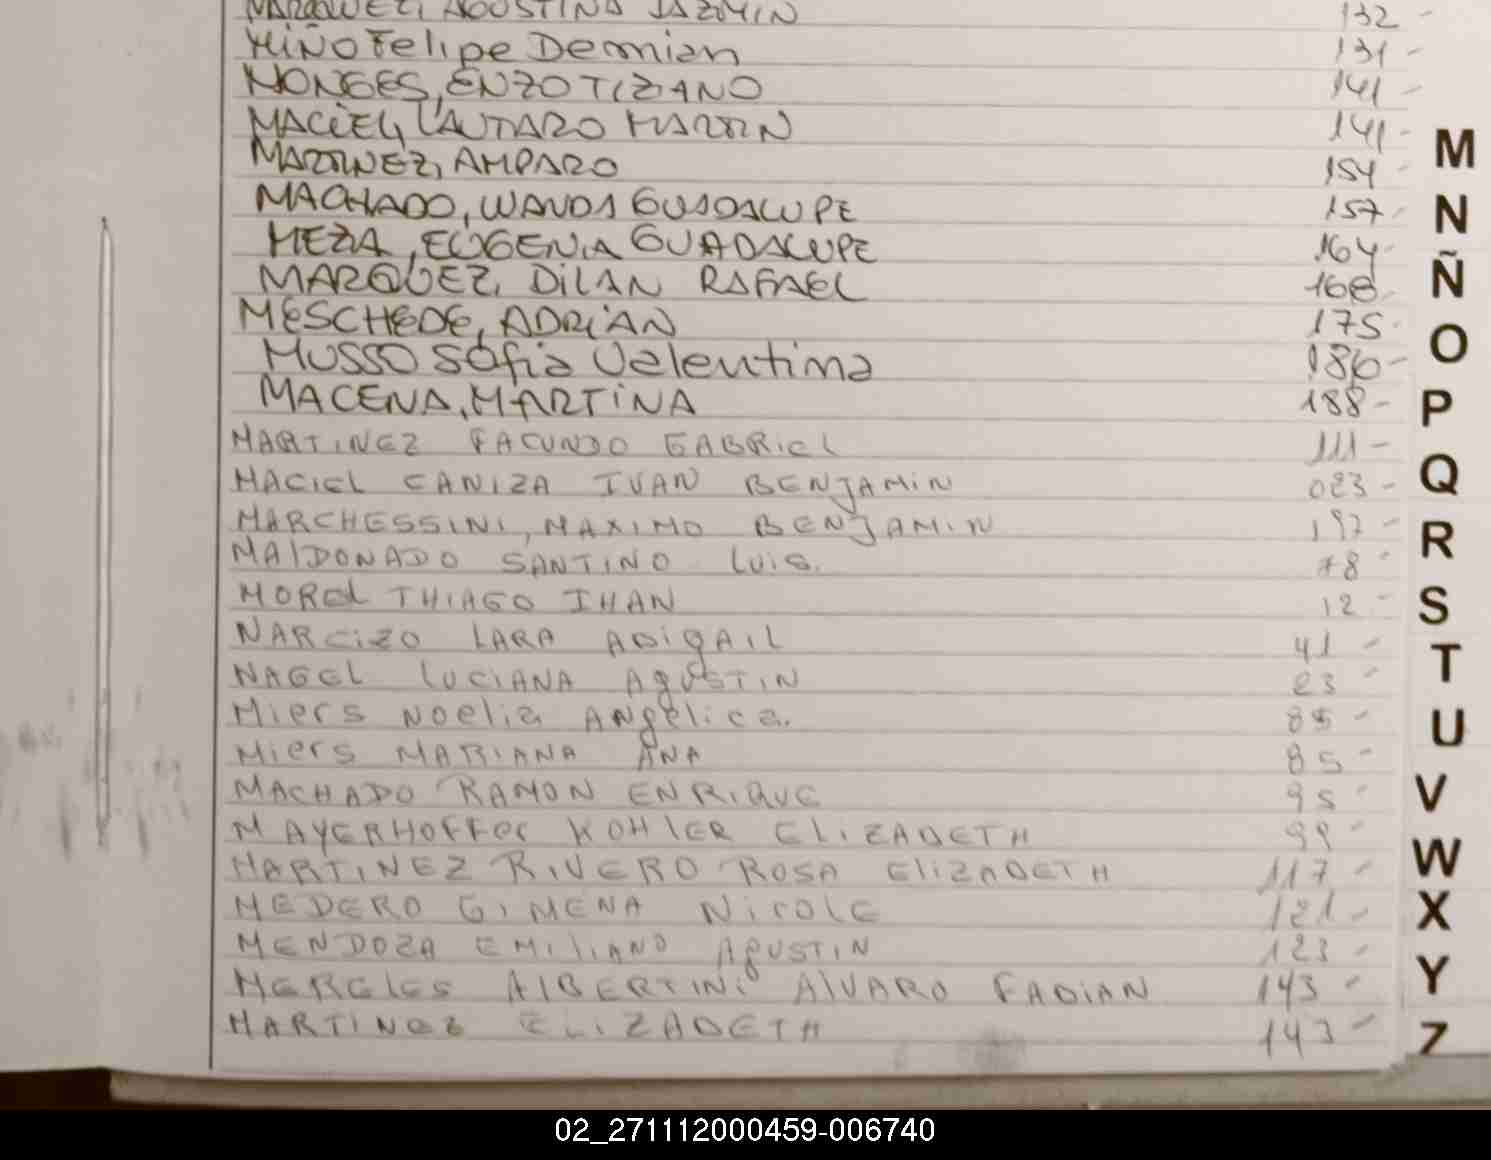 MARQUEZ, AGOSTINA JAZMIN 132 -
MIÑO Felipe Demian 131 -
MONGES, ENZO TIZIANO 141 -
MACIEL, LAUTARO MARTIN 141 -
MARTINEZ, AMPARO 154 -
MACHADO, WANDA GUADALUPE 157 -
MEZA, EUGENIA GUADALUPE 164 -
MARQUEZ, DILAN RAFAEL 168 -
MESCHEDE, ADRIAN 175 -
MUSSO Sofia Valentina 186 -
MACENA, MARTINA 188 -
MARTINEZ FACUNDO GABRIEL 111 -
MACIEL CANIZA IVAN BENJAMIN 023 -
MARCHESSINI, MAXIMO BENJAMIN 197 -
MAlDONADO SANTINO Luis. 78 -
MOREL THIAGO IHAN 12 -
NARCIZO LARA ABIgAIL 41 -
NAGEL LUCIANA AgUSTIN 23 -
Miers Noelia ANgelica. 85 -
Miers MARIANA ANA 85 -
MACHADO RAMON ENRIQUE 95 -
MAYERHOFFER KOHLER ELIZABETH 99 -
MARTINEZ RIVERO ROSA ElIZABETH 117 -
MEDERO GIMENA NICOLE 121 -
MENDOZA EMIlIANO AgUSTIN 123 -
MERELES AlBERTINI AlVARO FABIAN 143 -
MARTINEZ ELIZABETH 143 -
M
N
Ñ
O
P
Q
R
S
T
U
V
W
X
Y
Z
02_271112000459-006740